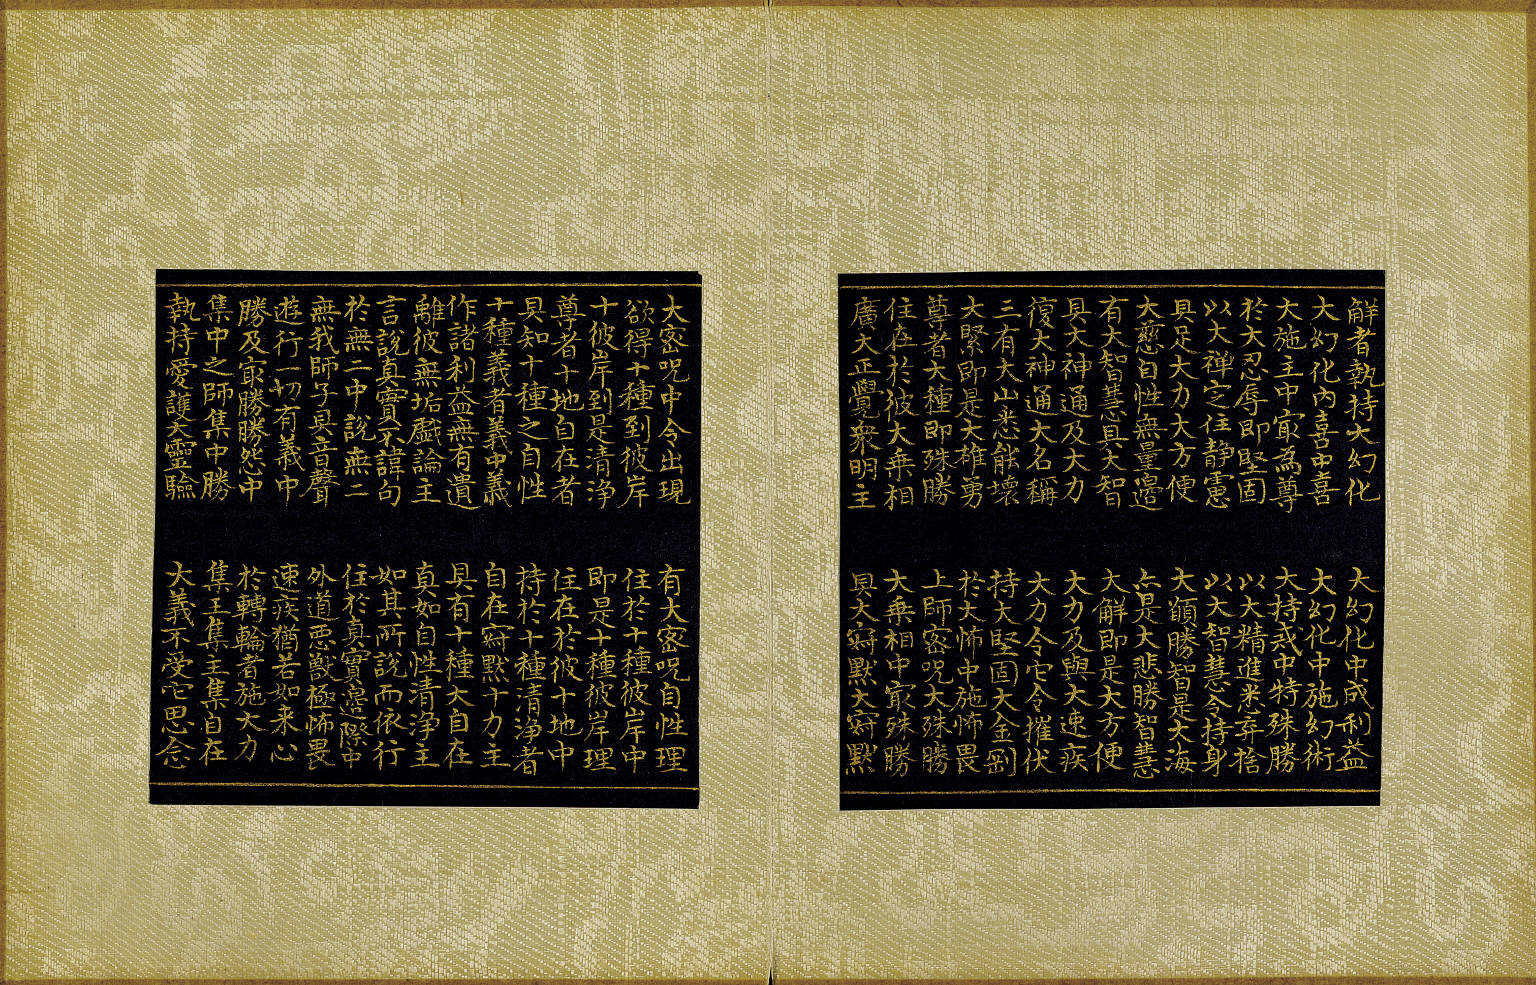 解者執持大幻化　大幻化中成利益
大幻化內喜中喜　大幻化中施幻術
大施主中㝡為尊　大持戒中特殊勝
於大忍辱即堅固　以大精進悉弃捨
以大禅定住静慮　以大智慧令持身
具足大力大方便　大願勝智是大海
大慈自性無量邊　亦是大悲勝智慧
有大智慧具大智　大解即是大方便
具大神通及大力　大力及與大速疾
復大神通大名稱　大力令它令摧伏
三有大山悉能壞　持大堅固大金剛
大緊即是大雄勇　於大怖中施怖畏
尊者大種即殊勝　上師密呪大殊勝
住在於彼大乘相　大乘相中㝡殊勝
廣大正覺衆明主　具大寂默大寂默
大密呪中令出現　有大密呪自性理
欲得十種到彼岸　住於十種彼岸中
十彼岸到是清淨　即是十種彼岸理
尊者十地自在者　住在於彼十地中
具知十種之自性　持於十種清淨者
十種義者義中義　自在寂默十力主
作諸利益無有遺　具有十種大自在
離彼無垢戲論主　真如自性清淨主
言說真實不諱句　如其所說而依行
於無二中說無二　住於真實邊際中
無我師子具音聲　外道惡獸極怖畏
遊行一切有義中　速疾猶若如来心
勝及㝡勝勝怨中　於轉輪者施大力
集中之師集中勝　集王集主集自在
執持愛護大靈驗　大義不受它思念